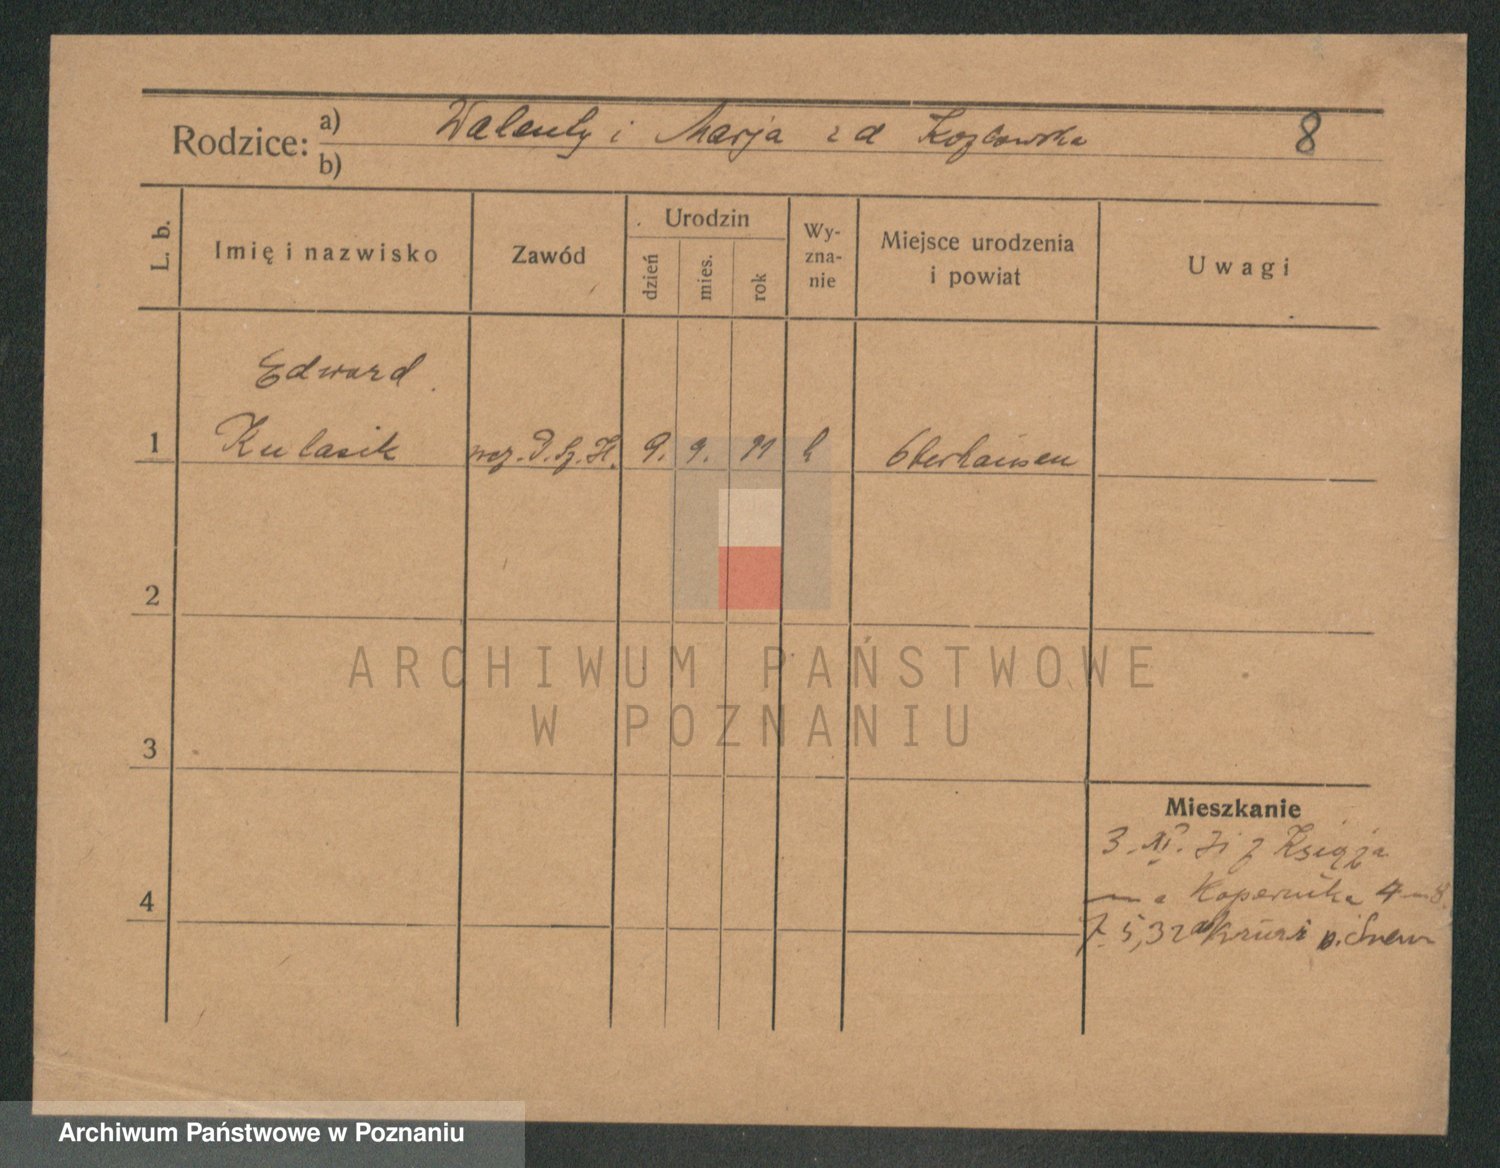 Rodzice: a) Walenty i Marja z d Kozłowska 8
b)
L. b.
Imię i nazwisko
Zawód
Urodzin
dzień
mies.
rok
Wy-
zna-
nie
Miejsce urodzenia
i powiat
Uwagi
Edward
1 Kulasik 9. 9. 11 k Oberhausen
2
ARCHIWUM PAŃSTWOWE
W POZNANIU
3
Mieszkanie
3. XI. 31 z Książa
Kopernika 4 m 8.
4
7. 5, 32
Archiwum Państwowe w Poznaniu